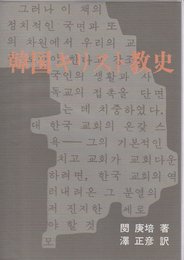 그러나 이 책의
정치적인 국면과 또
의 차원에서 우리의 교
韓国キリスト教史
국인의 생활과 사
독교의 접촉을 단면
는 데 치중하였다.
대 한국 교회의 온갖
독소——그의 기본적인
치고 교회가 교회다운
하려면, 한국 교회의 역
러내려온 그 분명의
저 진지한
야 할 것
모
閔 庚培 著
澤 正彦 訳